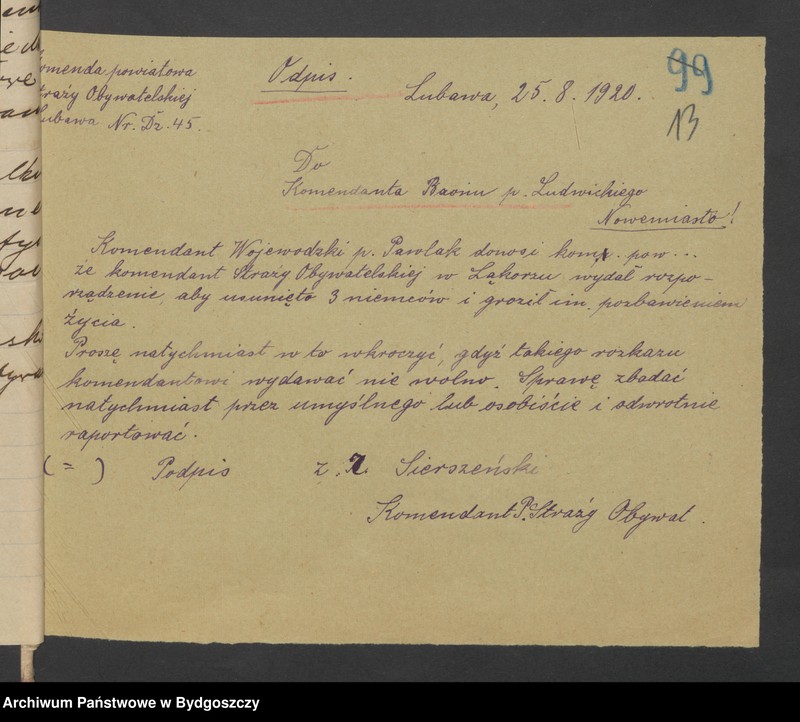 omenda powiatowa
traży Obywatelskiej
ubawa Nr. Dz. 45.
Odpis.
Lubawa, 25. 8. 1920.
99
13
Do
Komendanta Baonu p. Ludwickiego
Nowemiasto!
Komendant Wojewodzki p. Pawlak donosi kom. pow...
że komendant Straży Obywatelskiej w Łąkorzu wydał rozpo-
rządzenie, aby usunięto 3 niemców i groził im pozbawieniem
życia.
Proszę natychmiast w to wkroczyć, gdyż takiego rozkazu
komendantowi wydawać nie wolno. Sprawę zbadać
natychmiast przez umyślnego lub osobiście i odwrotnie
raportować.
( = ) Podpis z. Sierszeński
Komendant P. Straży Obywat.
Archiwum Państwowe w Bydgoszczy